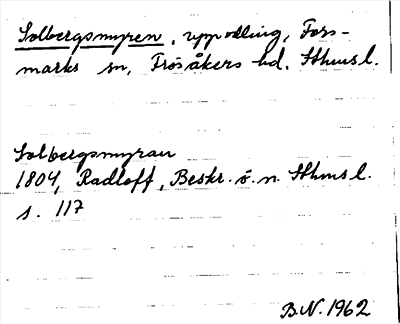 Solbergsmyren, uppodling, Fors-
marks sn, Frösåkers hd. Sthms l.
Solbergsmyran
1804, Radloff, Beskr. ö. n. Sthms l.
s. 117
B.N. 1962